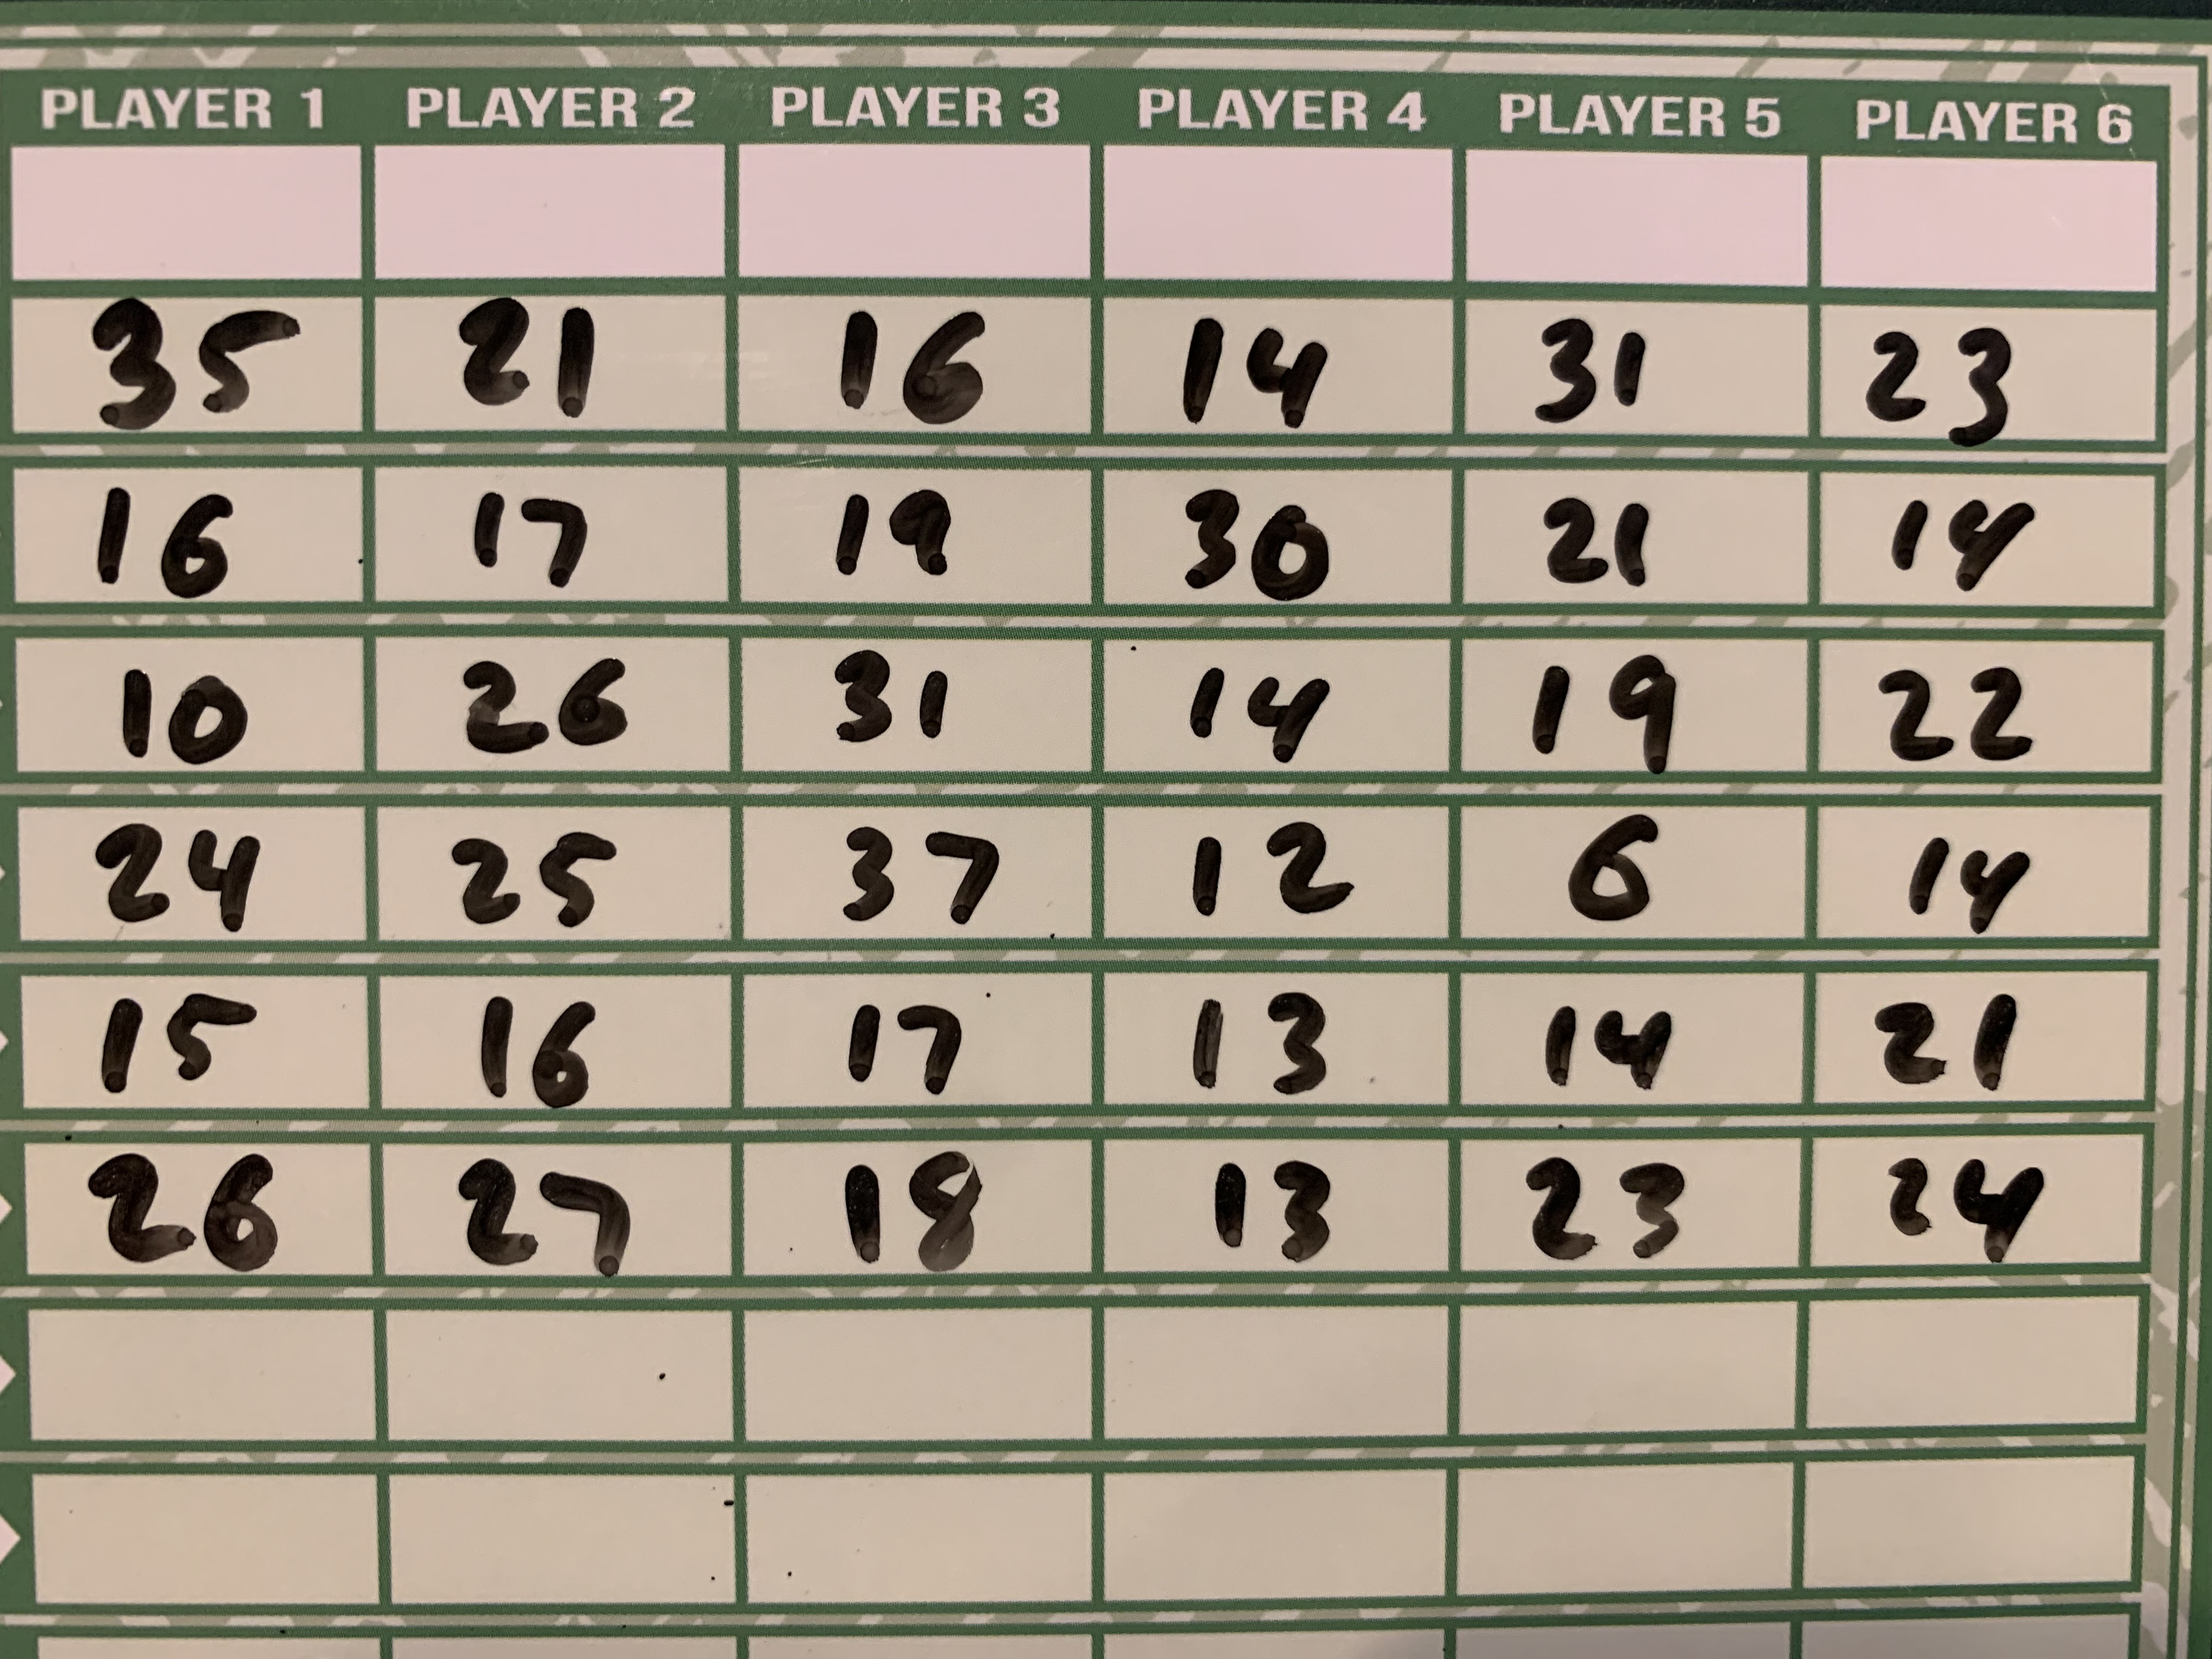 PLAYER 1 PLAYER 2 PLAYER 3 PLAYER 4 PLAYER 5 PLAYER 6
35 21 16 14 31 23
16 17 19 30 21 14
10 26 31 14 19 22
24 25 37 12 6 14
15 16 17 13 14 21
26 27 18 13 23 24